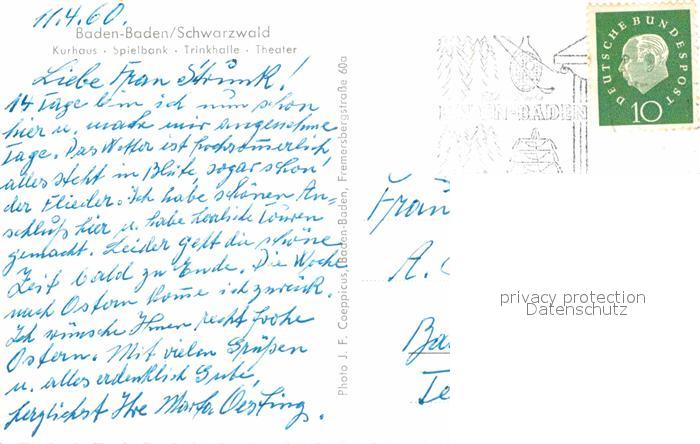 11.4.60.
Baden-Baden/Schwarzwald
Kurhaus · Spielbank · Trinkhalle · Theater
Liebe Frau Strunk!
14 Tage bin ich nun schon
hier u. mache mir angenehme
Tage. Das Wetter ist hochsommerlich,
alles steht in Blüte, sogar schon
der Flieder. Ich habe schönen An=
schluß hier u. habe herrliche Touren
gemacht. Leider geht die schöne
Zeit bald zu Ende. Die Woche
nach Ostern komme ich zurück.
Ich wünsche Ihnen recht frohe
Ostern. Mit vielen Grüßen
u. alles erdenklich Gute,
herzlichst Ihre Marta Oesting.
Photo J. F. Coeppicus, Baden-Baden, Fremersbergstraße 60a
BADEN-BADEN
DEUTSCHE BUNDESPOST
10
Frau
A.
Ba
Te
privacy protection
Datenschutz